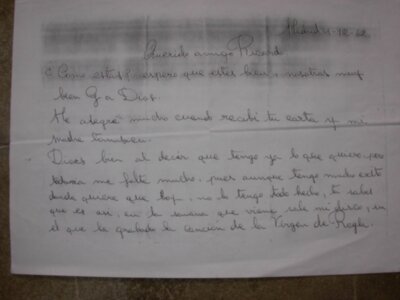 Madrid 11-12-62
Querido amigo Ricard
¿Como estas? espero que estes bien, nosotros muy
bien G a Dios.
Me alegré mucho cuando recibi tu carta y mi
madre tambien.
Dices bien al decir que tengo ya lo que quiero, pero
todavia me falta mucho. pues aunque tengo mucho exito
donde quiera que voy, no lo tengo todo hecho, tu sabes
que es asi, en la semana que viene sale mi disco, en
el que he grabado la canción de la Virgen de Regla.